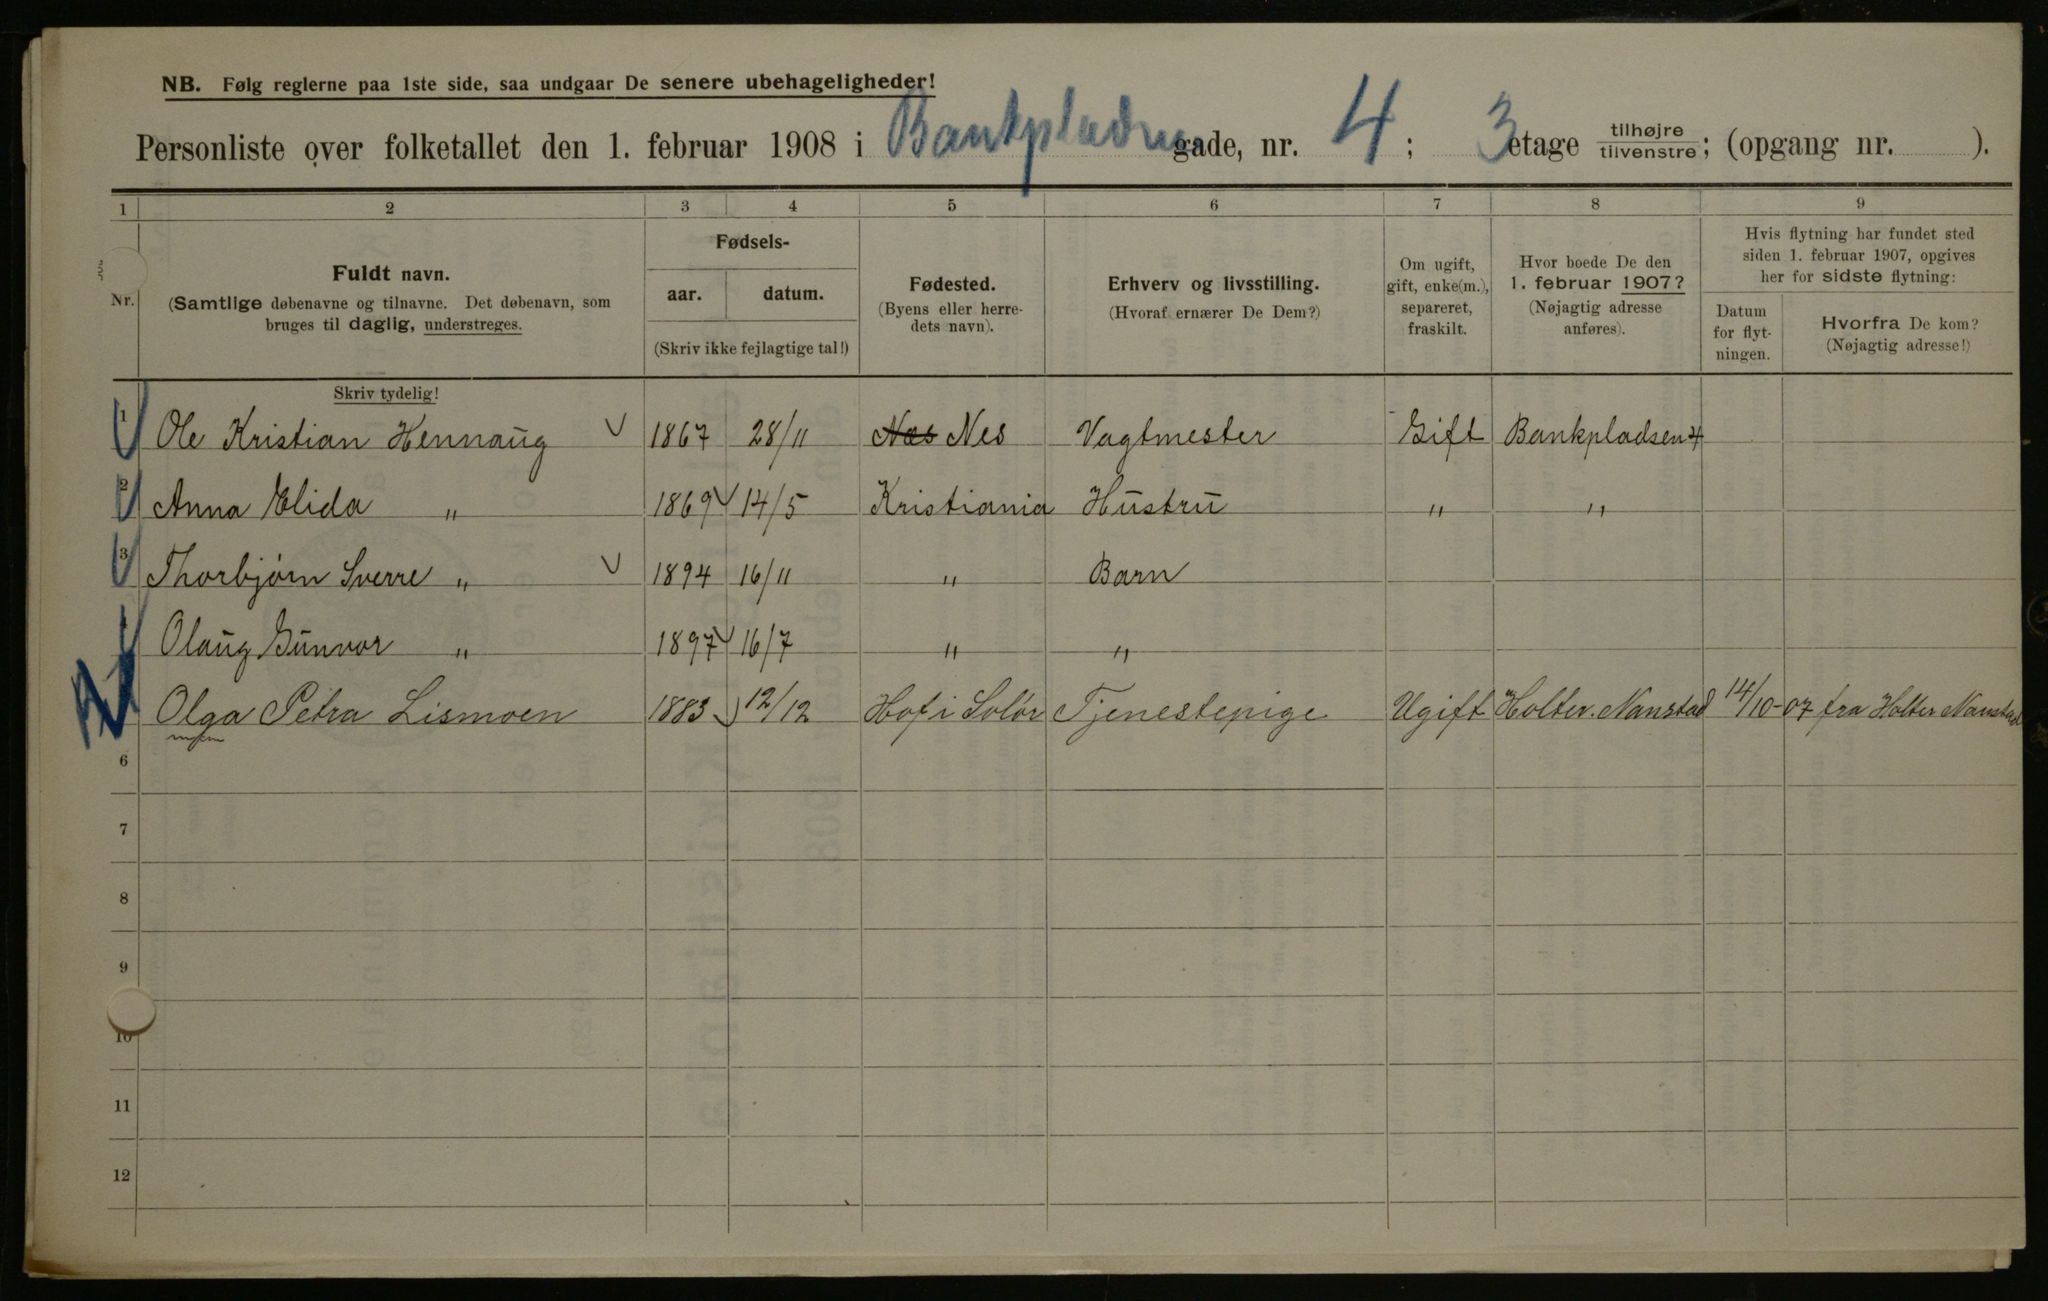 NB. Følg reglerne paa 1ste side, saa undgaar De senere ubehageligheder!
Personliste over folketallet den 1. februar 1908 i Bankpladsen gade, nr. 4; 3 etage tilhøjre tilvenstre; (opgang nr. ).
1 2 3 4 5 6 7 8 9
Nr.
Fuldt navn.
(Samtlige døbenavne og tilnavne. Det døbenavn, som
bruges til daglig, understreges.
Fødsels-
aar. datum.
(Skriv ikke fejlagtige tal!)
Fødested.
(Byens eller herre-
dets navn).
Erhverv og livsstilling.
(Hvoraf ernærer De Dem?)
Om ugift,
gift, enke(m.),
separeret,
fraskilt.
Hvor boede De den
1. februar 1907?
(Nøjagtig adresse
anføres).
Hvis flytning har fundet sted
siden 1. februar 1907, opgives
her for sidste flytning:
Datum
for flyt-
ningen.
Hvorfra De kom?
(Nøjagtig adresse!)
Skriv tydelig!
1 Ole Kristian Hennaug 1867 28/11 Næs Nes Vagtmester Gift Bankpladsen 4
2 Anna Elida " 1869 14/5 Kristiania Hustru " "
3 Thorbjörn Sverre " 1894 16/11 " Barn
4 Olaug Gunvor " 1897 16/7 " "
Olga Petra Lismoen 1883 12/12 Hof i Solör Tjenestepige Ugift Holter. Nanstad 14/10-07 fra Holter Nanstad
6
7
8
9
10
11
12